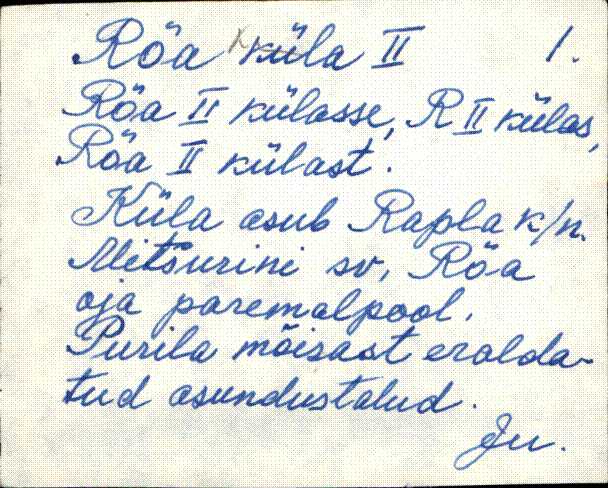 Röa küla II 1.
Röa II külasse, R II külas,
Röa II külast.
Küla asub Rapla k/n.
Mitšurini sv, Röa
oja paremalpool.
Purila mõisast eralda-
tud asundustalud.
Ju.